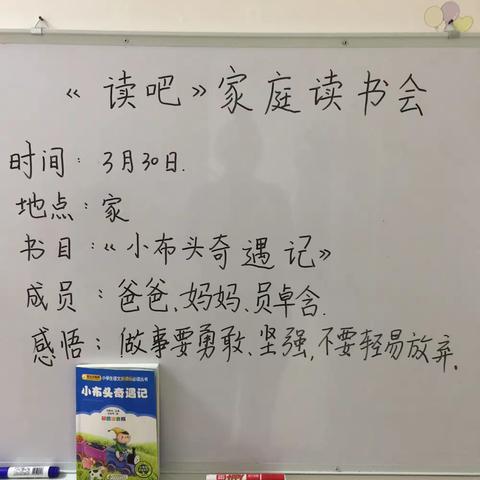 《读吧》家庭读书会
时间：3月30日.
地点：家
书目：《小布头奇遇记》
成员：爸爸、妈妈、员卓含.
感悟：做事要勇敢、坚强,不要轻易放弃。
小布头奇遇记